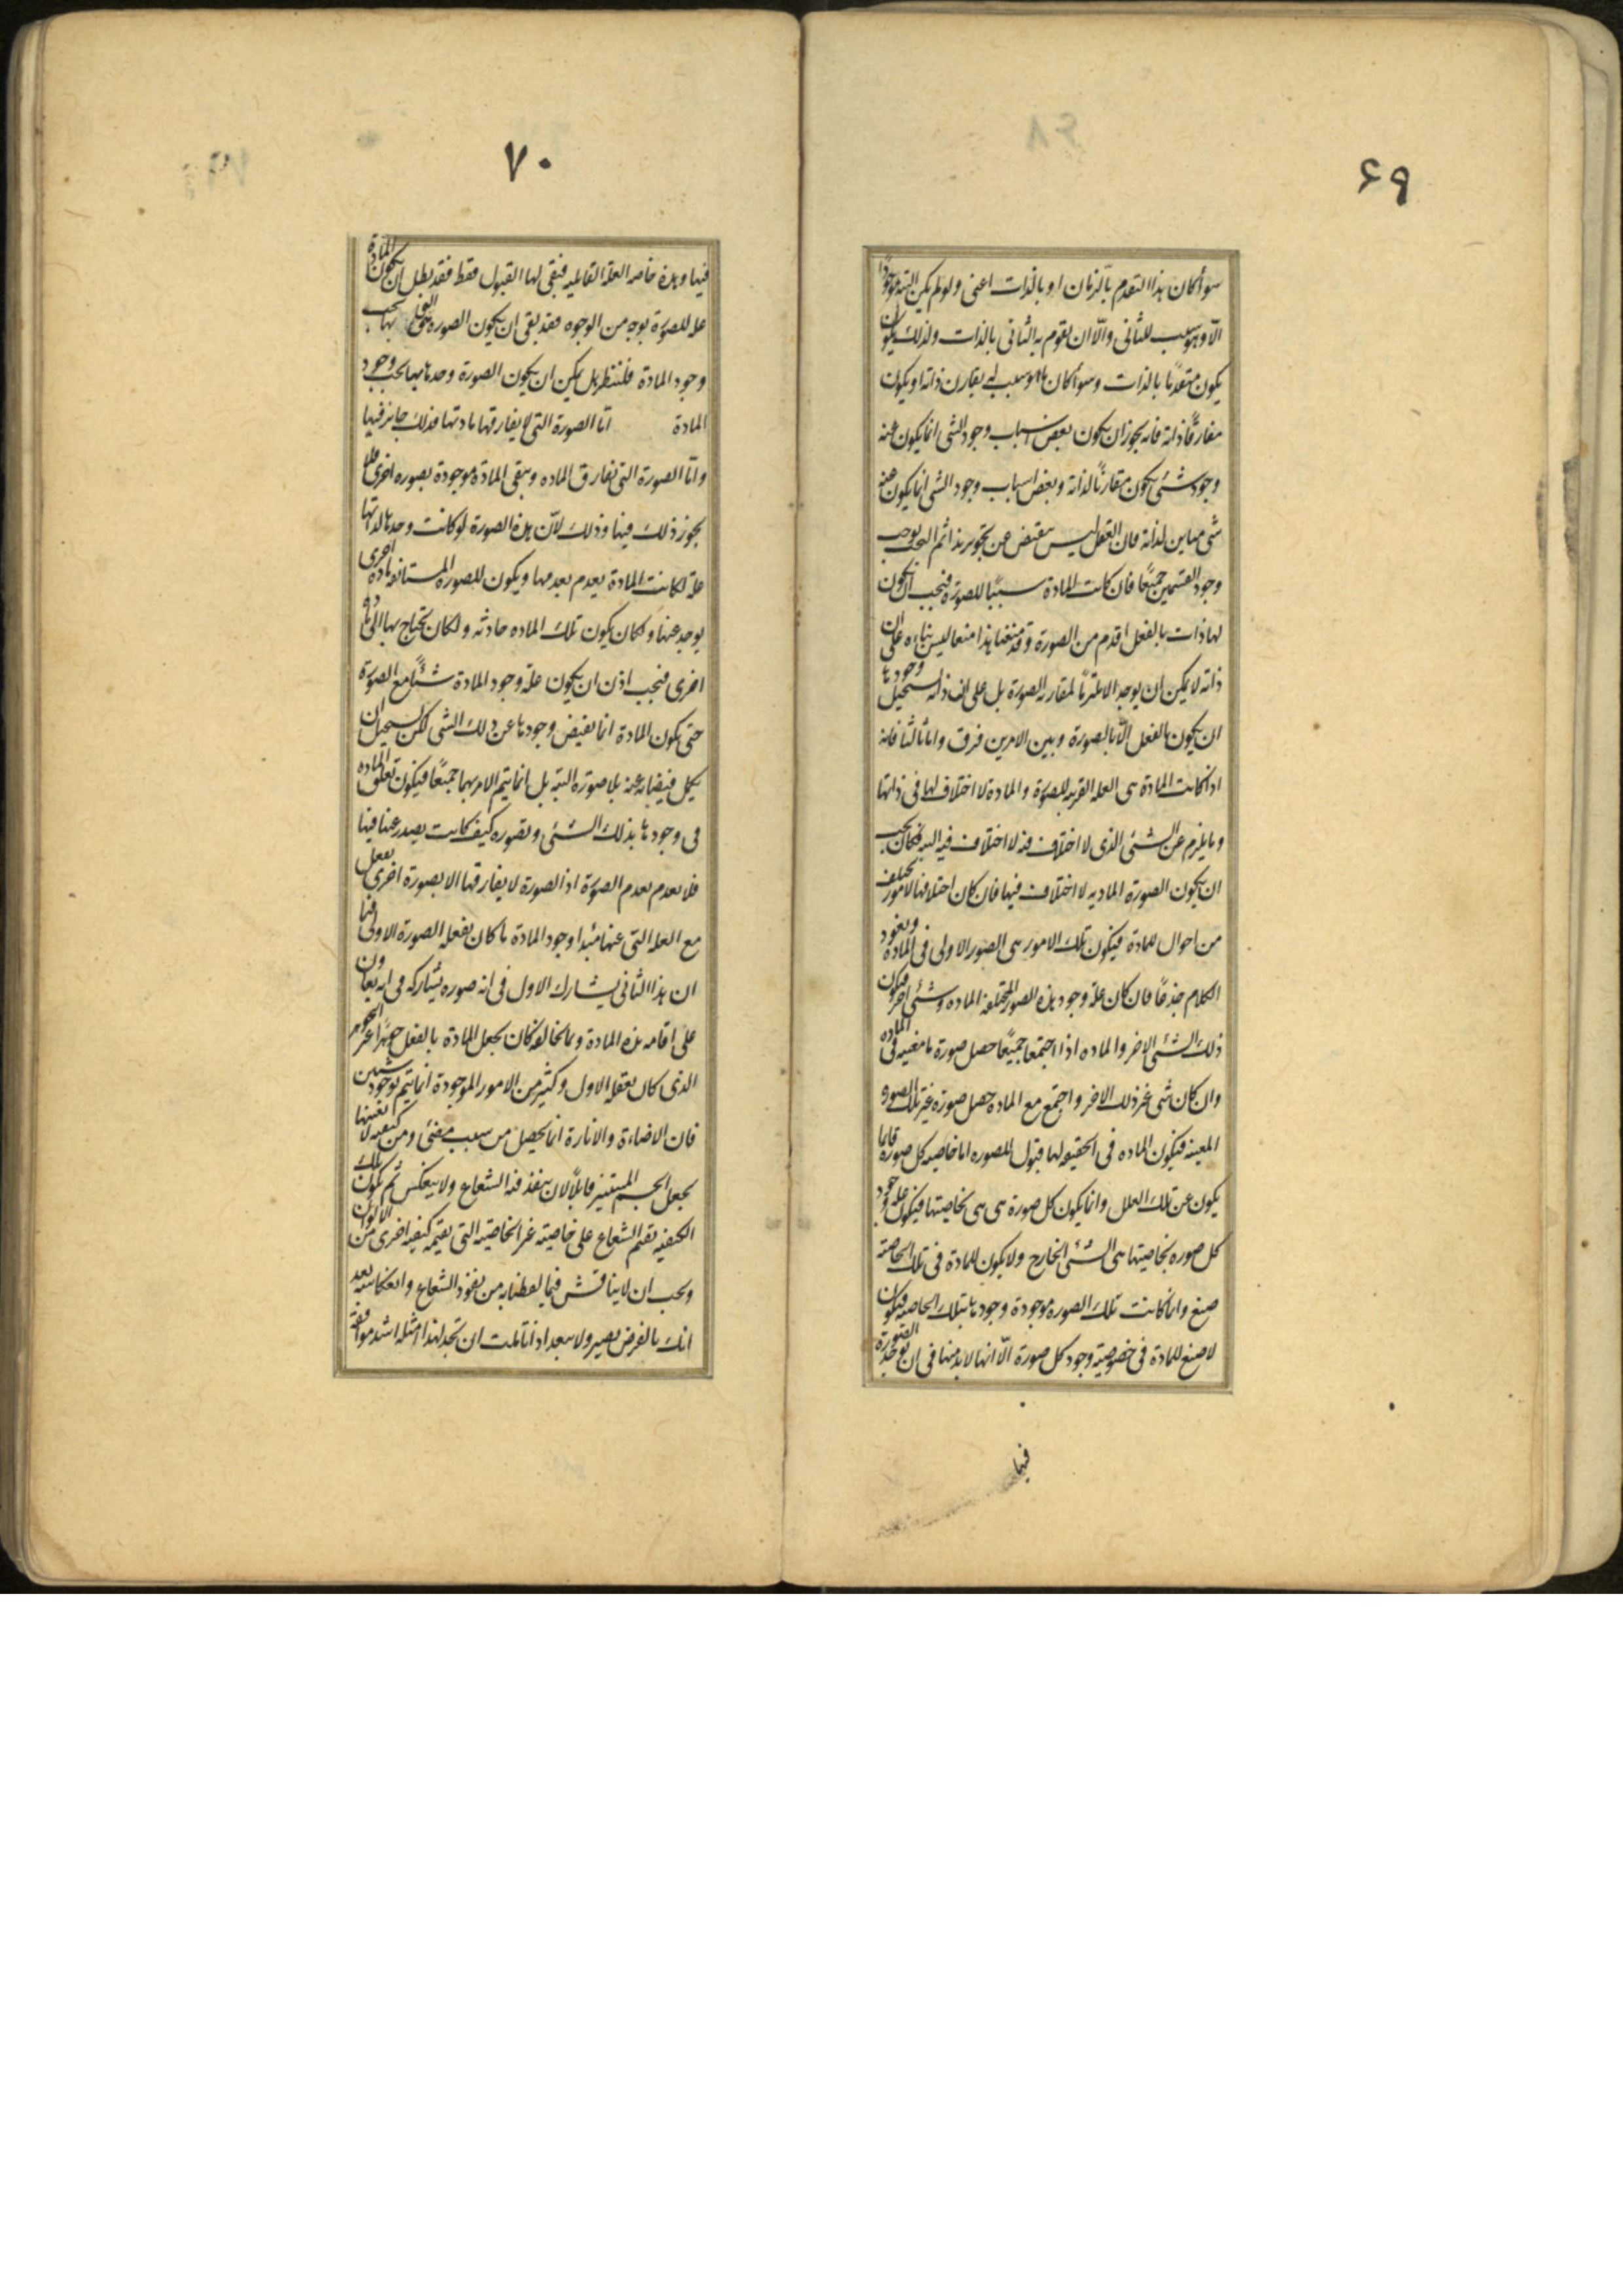 ۶۹
سوأ كان هذا التقدم بالزمان او بالذات اعنى ولو لم يكن البته موجودًا
الّا وهو سبب للثانى والّا ان يقوم به الثانى بالذات ولذلك يكون
يكون متقدمًا بالذات وسوأ كان ما هو سبب له يقارن ذاته او يكون
مفارقًا ذاته فانه يجوز ان يكون بعض اسباب وجود الشى انما يكون عنه
وجود شئ يكون مقارنًا لذاته وبعض اسباب وجود الشى انما يكون عنه
شى مباين لذاته فان العقل ليس ينقبض عن تجويز هذا ثم البحث يوجب
وجود القسمين جميعًا فان كانت المادة سببًا للصورة فيجب ان يكون
لها ذات بالفعل اقدم من الصورة وقد منعنا هذا منعا ليس بناءه على ان
ذاته لا يمكن ان يوجد الا ملتزمًا لمقارنة الصورة بل على ان ذاته يستحيل وجودها
ان يكون بالفعل الّا بالصورة وبين الامرين فرق واما ثالثا فانه
اذا كانت المادة هى العلة القريبه للصورة والمادة لا اختلاف لها فى ذاتها
وما يلزم عن الشئ الذى لا اختلاف فيه لا اختلاف فيه البته فكان يجب
ان يكون الصورة الماديه لا اختلاف فيها فان كان اختلافها لامور تختلف
من احوال للمادة فيكون تلك الامور هى الصور الاولى فى المادة ويعود
الكلام جذعًا فان كان علة وجود هذه الصور المختلفه الماده وشئ اخر فيكون
ذلك الشئ الاخر والماده اذا اجتمعا جميعًا حصل صورة ما معينه فى الماده
وان كان شى غير ذلك الاخر واجتمع مع الماده حصل صورة غير تلك الصوره
المعينه فيكون الماده فى الحقيقه لها قبول الصوره اما خاصيه كل صوره فانما
يكون عن تلك العلل وانما يكون كل صورة هى هى بخاصيتها فيكون علة وجود
كل صوره بخاصيتها هى الشئ الخارج ولا يكون للمادة فى تلك الخاصية
صنع وانما كانت تلك الصوره موجودة وجودها بتلك الخاصيه فيكون
لا صنع للمادة فى خصوصية وجود كل صورة الّا انها لا بد منها فى ان توجد الصورة
فيها
۷۰
فيها وهذه خاصه العلة القابليه فبقى لها القبول فقط فقد بطل ان يكون المادة
علة للصورة بوجه من الوجوه فقد بقى ان يكون الصوره هى التى بها يجب
وجود المادة فلننظر هل يمكن ان يكون الصورة وحدها بها يجب وجود
المادة اما الصورة التى لا يفارقها مادتها فذلك جايز فيها
واما الصورة التى تفارق الماده ويبقى المادة موجودة بصوره اخرى فلا
يجوز ذلك فيها وذلك لانّ هذه الصورة لو كانت وحدها لذاتها
علة لكانت المادة يعدم بعدمها ويكون للصورة المستانفه مادة اخرى
يوجد عنها ولكان يكون تلك الماده حادثه ولكان يحتاج بها الى مادة
اخرى فيجب اذن ان يكون علة وجود المادة شيئًا مع الصورة
حتى يكون المادة انما يفيض وجودها عن ذلك الشى لكن يستحيل ان
يكمل فيضانه عنه بلا صورة البتة بل انما يتم الامر بهما جميعًا فيكون تعلق الماده
فى وجودها بذلك الشئ وبصوره كيف كانت يصدر عنه فيها
فلا يعدم بعدم الصورة اذ الصورة لا يفارقها الا بصورة اخرى يفعل
مع العله التى عنها مبدا وجود المادة ما كان يفعله الصورة الاولى فبما
ان هذا الثانى يشارك الاول فى انه صوره يشاركه فى انه يعاون
على اقامه هذه المادة وبما يخالفه كان يجعل المادة بالفعل جوهرًا غير الجوهر
الذى كان يفعله الاول وكثير من الامور الموجودة انما يتم بوجود شيئين
فان الاضاءة والانارة انما يحصل من سبب مضئ ومن كيفيه لا بعينها
يجعل الجسم المستنير قابلًا لان ينفذ فيه الشعاع ولا ينعكس ثم يكون تلك
الكيفيه تقيم الشعاع على خاصيته غير الخاصيه التى يقيمه كيفيه اخرى من الالوان
ويجب ان لا يناقش فيما لفظنا به من نفوذ الشعاع وانعكاسه بعد
انك بالغرض بصير ولا يبعد اذا تاملت ان تجد لهذا امثله اشد موافقة